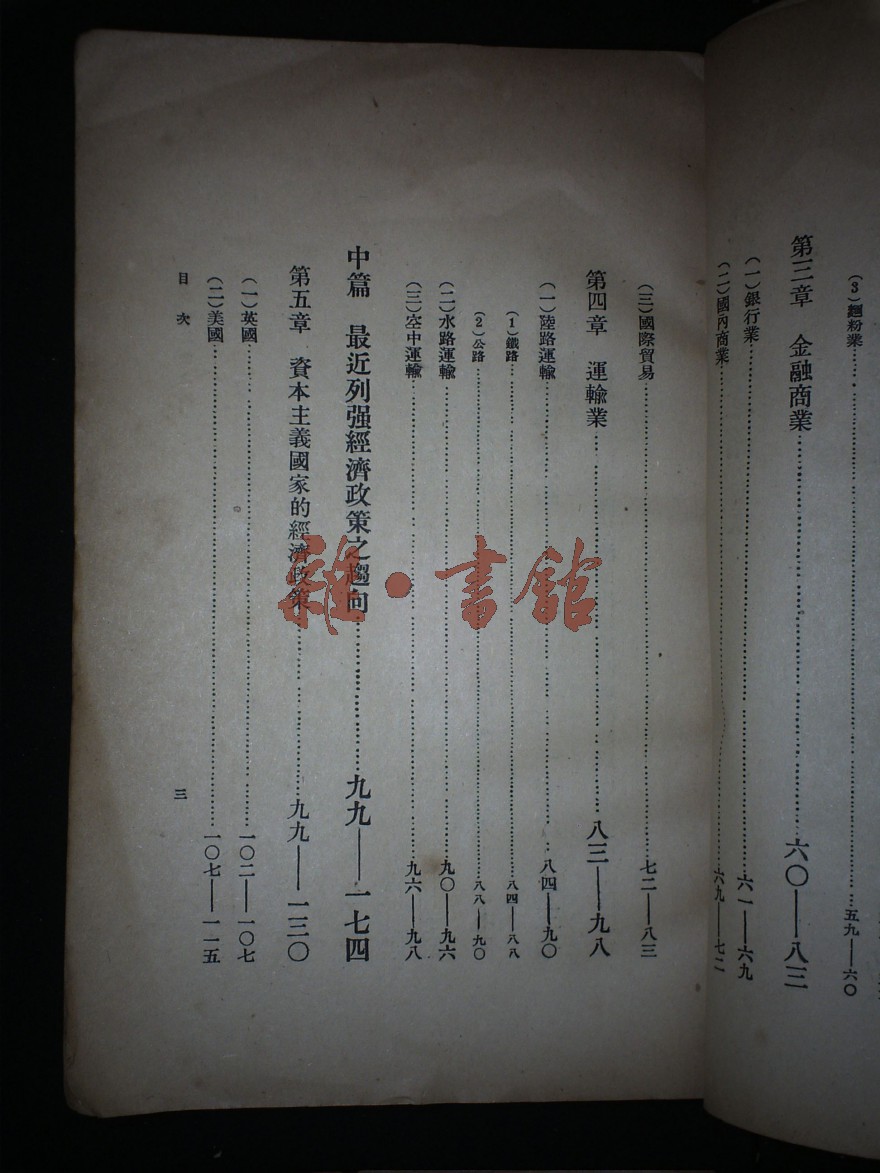 (3)麵粉業……五九——六〇
第三章 金融商業……六〇——八三
(一)銀行業……六一——六九
(二)國內商業……六九——七二
(三)國際貿易……七二——八三
第四章 運輸業……八三——九八
(一)陸路運輸……八四——九〇
(1)鐵路……八四——八八
(2)公路……八八——九〇
(二)水路運輸……九〇——九六
(三)空中運輸……九六——九八
中篇 最近列强經濟政策之趨向……九九——一七四
第五章 資本主義國家的經濟政策……九九——一三〇
(一)英國……一〇二——一〇七
(二)美國……一〇七——一一五
目次
三
雜·書館